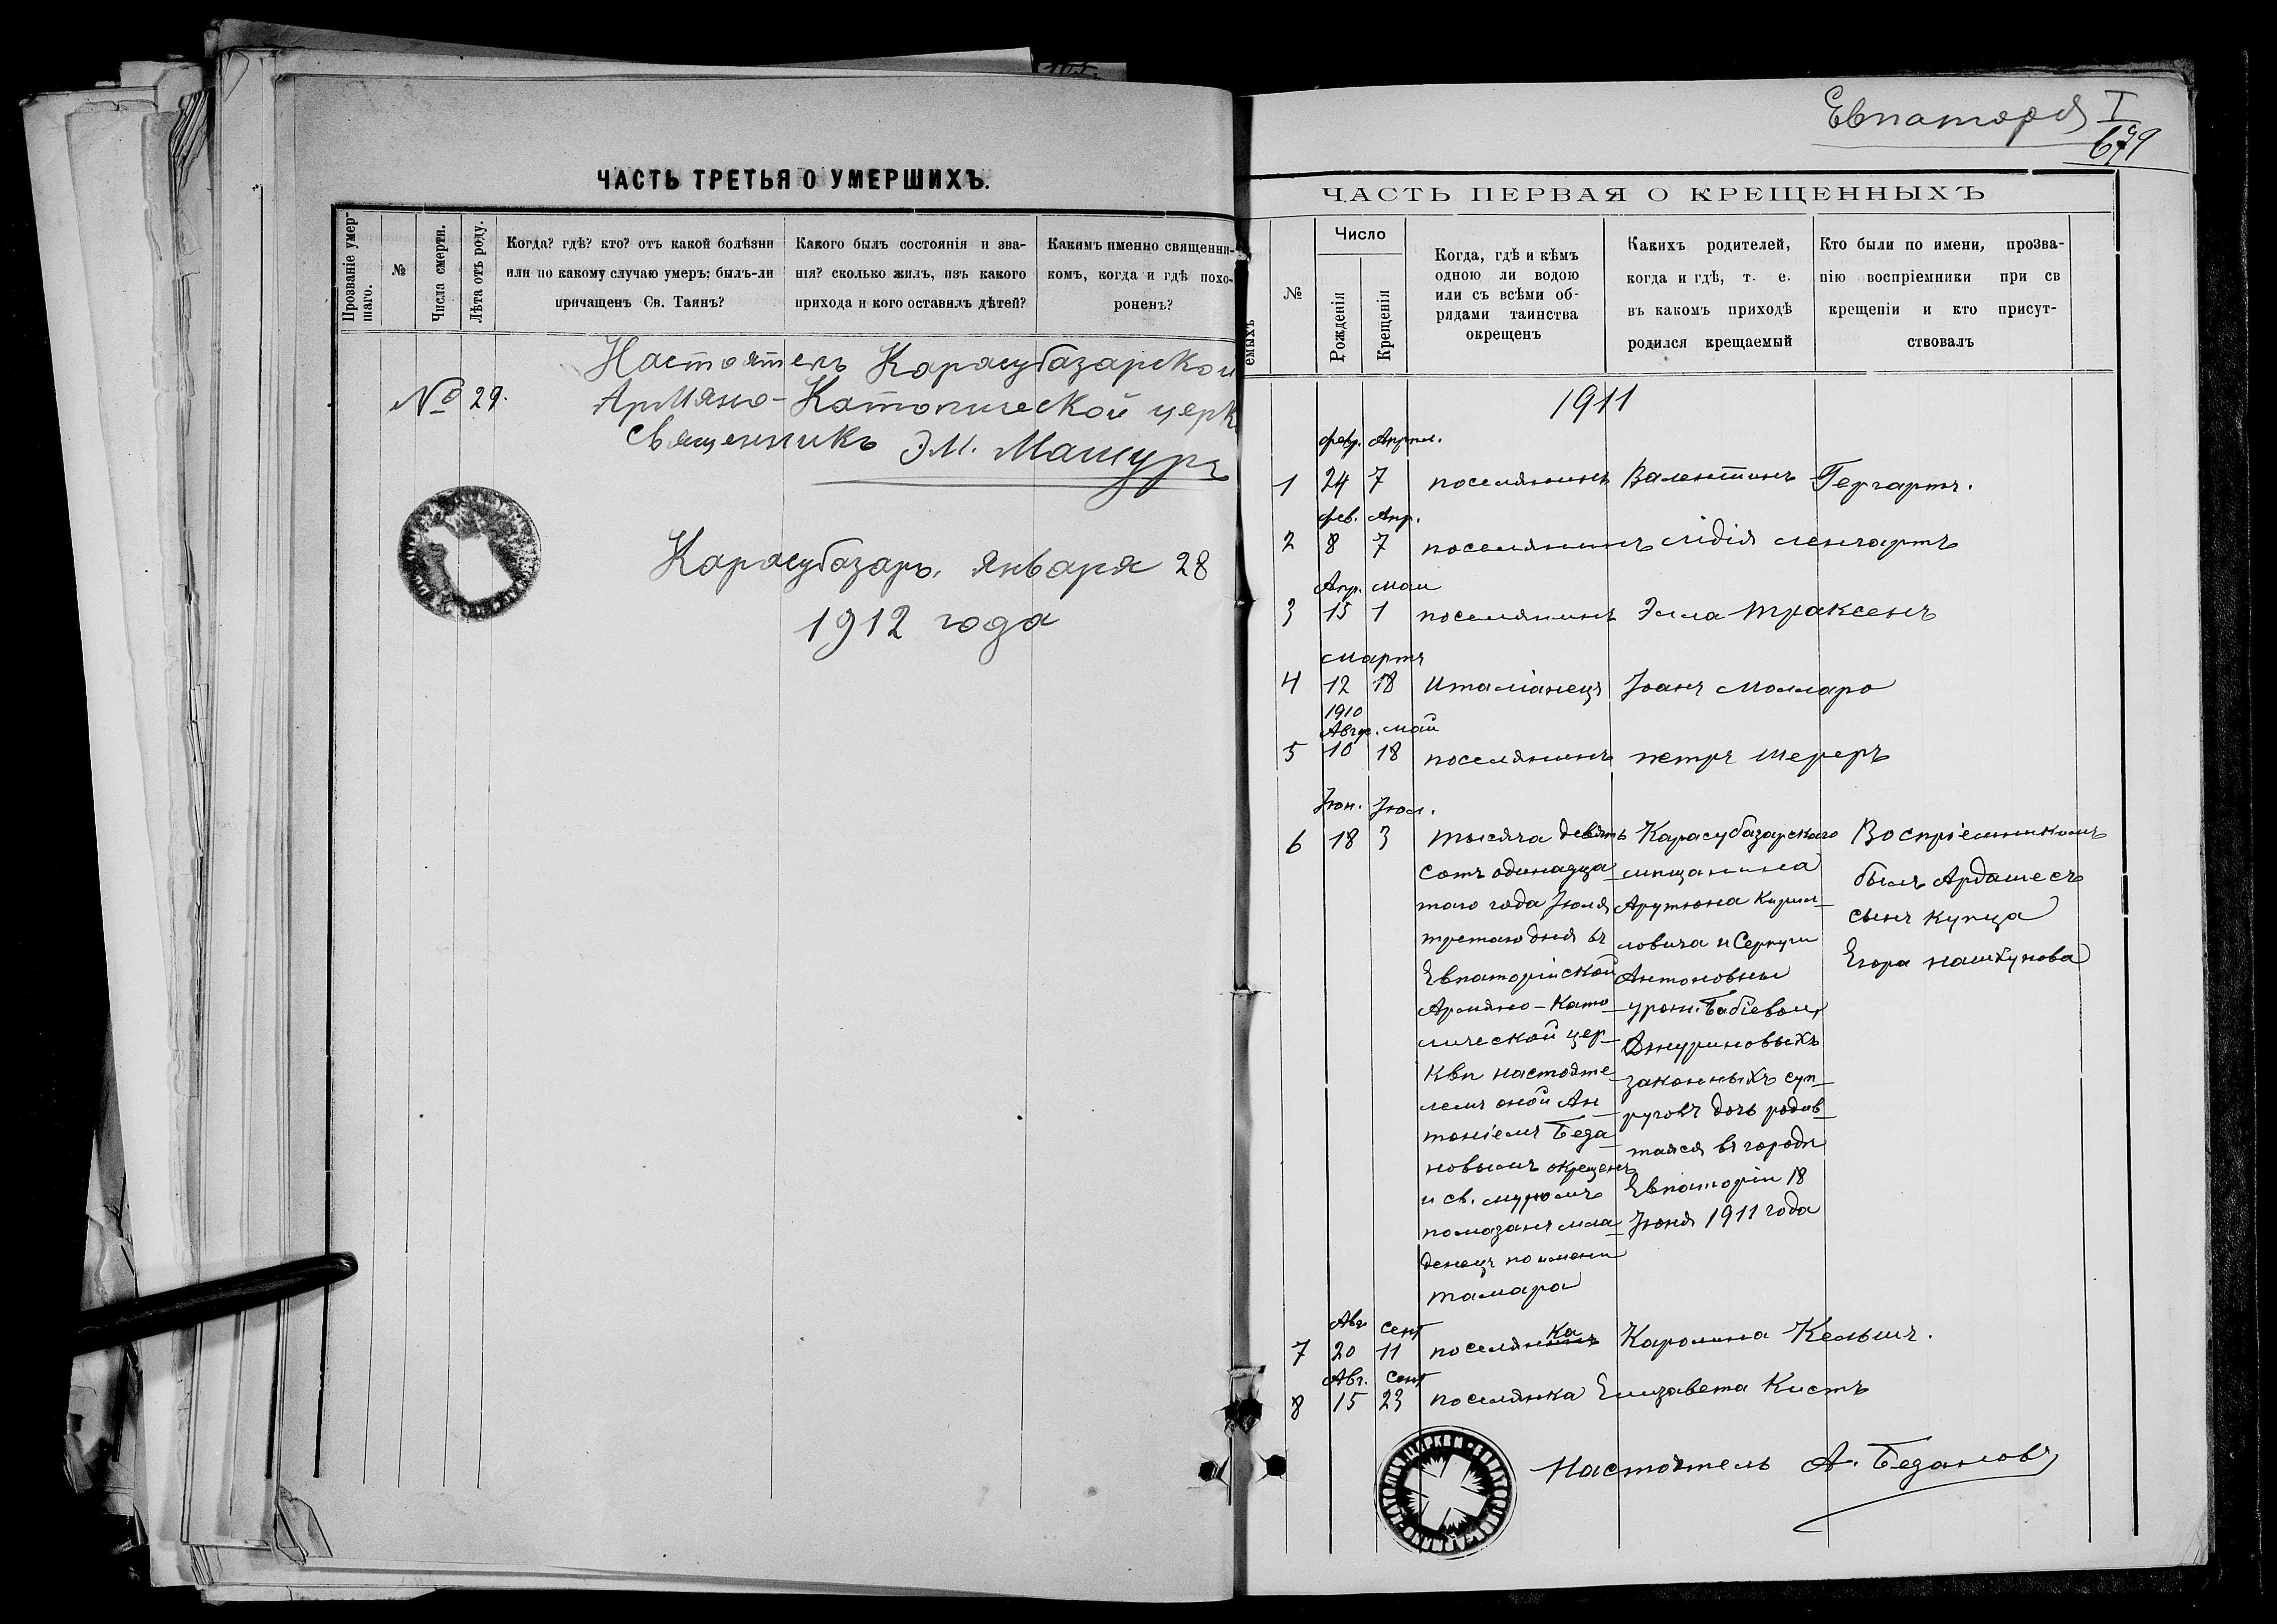 ЧАСТЬ ТРЕТЬЯ О УМЕРШИХЪ.
Прозваніе умер-
шаго.
№
Числа смерти.
Лѣта отъ роду.
Когда? гдѣ? кто? отъ какой болѣзни
или по какому случаю умеръ: былъ-ли
причащенъ Св. Таинъ?
Какого былъ состоянія и зва-
нія? сколько жилъ, изъ какого
прихода и кого оставилъ дѣтей?
Какимъ именно священни-
комъ, когда и гдѣ похо-
роненъ?
Настоятель Карасубазарской
№ 29.
Армяно-Католической церк
Священникъ
Карасубазаръ, Января 28
1912 года
Евпаторія I
ЧАСТЬ ПЕРВАЯ О КРЕЩЕННЫХЪ
емыхъ
№
Число
Рожденія
Крещенія
Когда, гдѣ и кѣмъ
одною ли водою
или съ всѣми об-
рядами таинства
окрещенъ
Какихъ родителей,
когда и гдѣ, т. е.
въ какомъ приходѣ
родился крещаемый
Кто были по имени, прозва-
нію воспріемники при св
крещеніи и кто присут-
ствовалъ
1911
фев. Апрѣл.
1 24 7 поселянинъ Валентинъ Гергартъ.
фев. Апр.
2 8 7 поселянинъ Лидія Ленгартъ
Апр. Маи
3 15 1 поселянинъ Элла Траксенъ
Мартъ
4 12 18 Италіанецъ Іоанъ Молларо
1910
Авгус. Май
5 10 18 поселянинъ Петръ Шереръ
Іюн. Іюл.
6 18 3 Тысяча девять
сотъ одинадца
таго года Іюля
третаго дня въ
Евпаторійской
Армяно-Като
лической цер-
квѣ настояте
лемъ оной Ан
тоніемъ Беда
новымъ окрещенъ
и св. муромъ
помазанъ мла
денецъ по имени
Тамара
Карасубазарскаго
мѣщанина
Арутюна Кирил-
ловича и
Антоновны
урож. Бабіевой
законныхъ суп-
руговъ дочь родив
шаяся въ городѣ
Евпаторіи 18
Іюня 1911 года
Воспріемникомъ
былъ Ардашесъ
сынъ купца
Егора
Авг Сент
7 20 11 поселянка Каролина Кельшъ.
Авг. Сент
8 15 23 поселянка Елизавета Кистъ
Настоятель А. Бедановъ